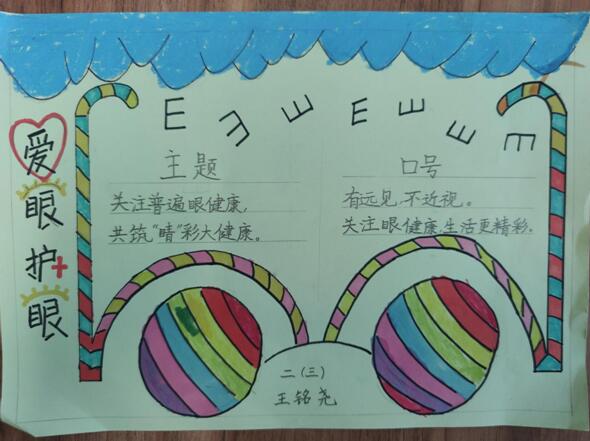 爱眼护眼
E E E E E E E
主题
关注普遍眼健康,
共筑“睛”彩大健康。
口号
有远见,不近视。
关注眼健康,生活更精彩。
二(三)
王铭尧